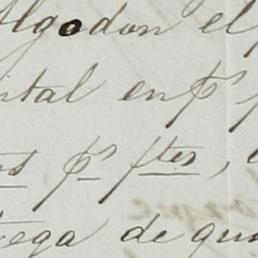 Algodon el
ital en p.s
p.s ftes,
ega de que